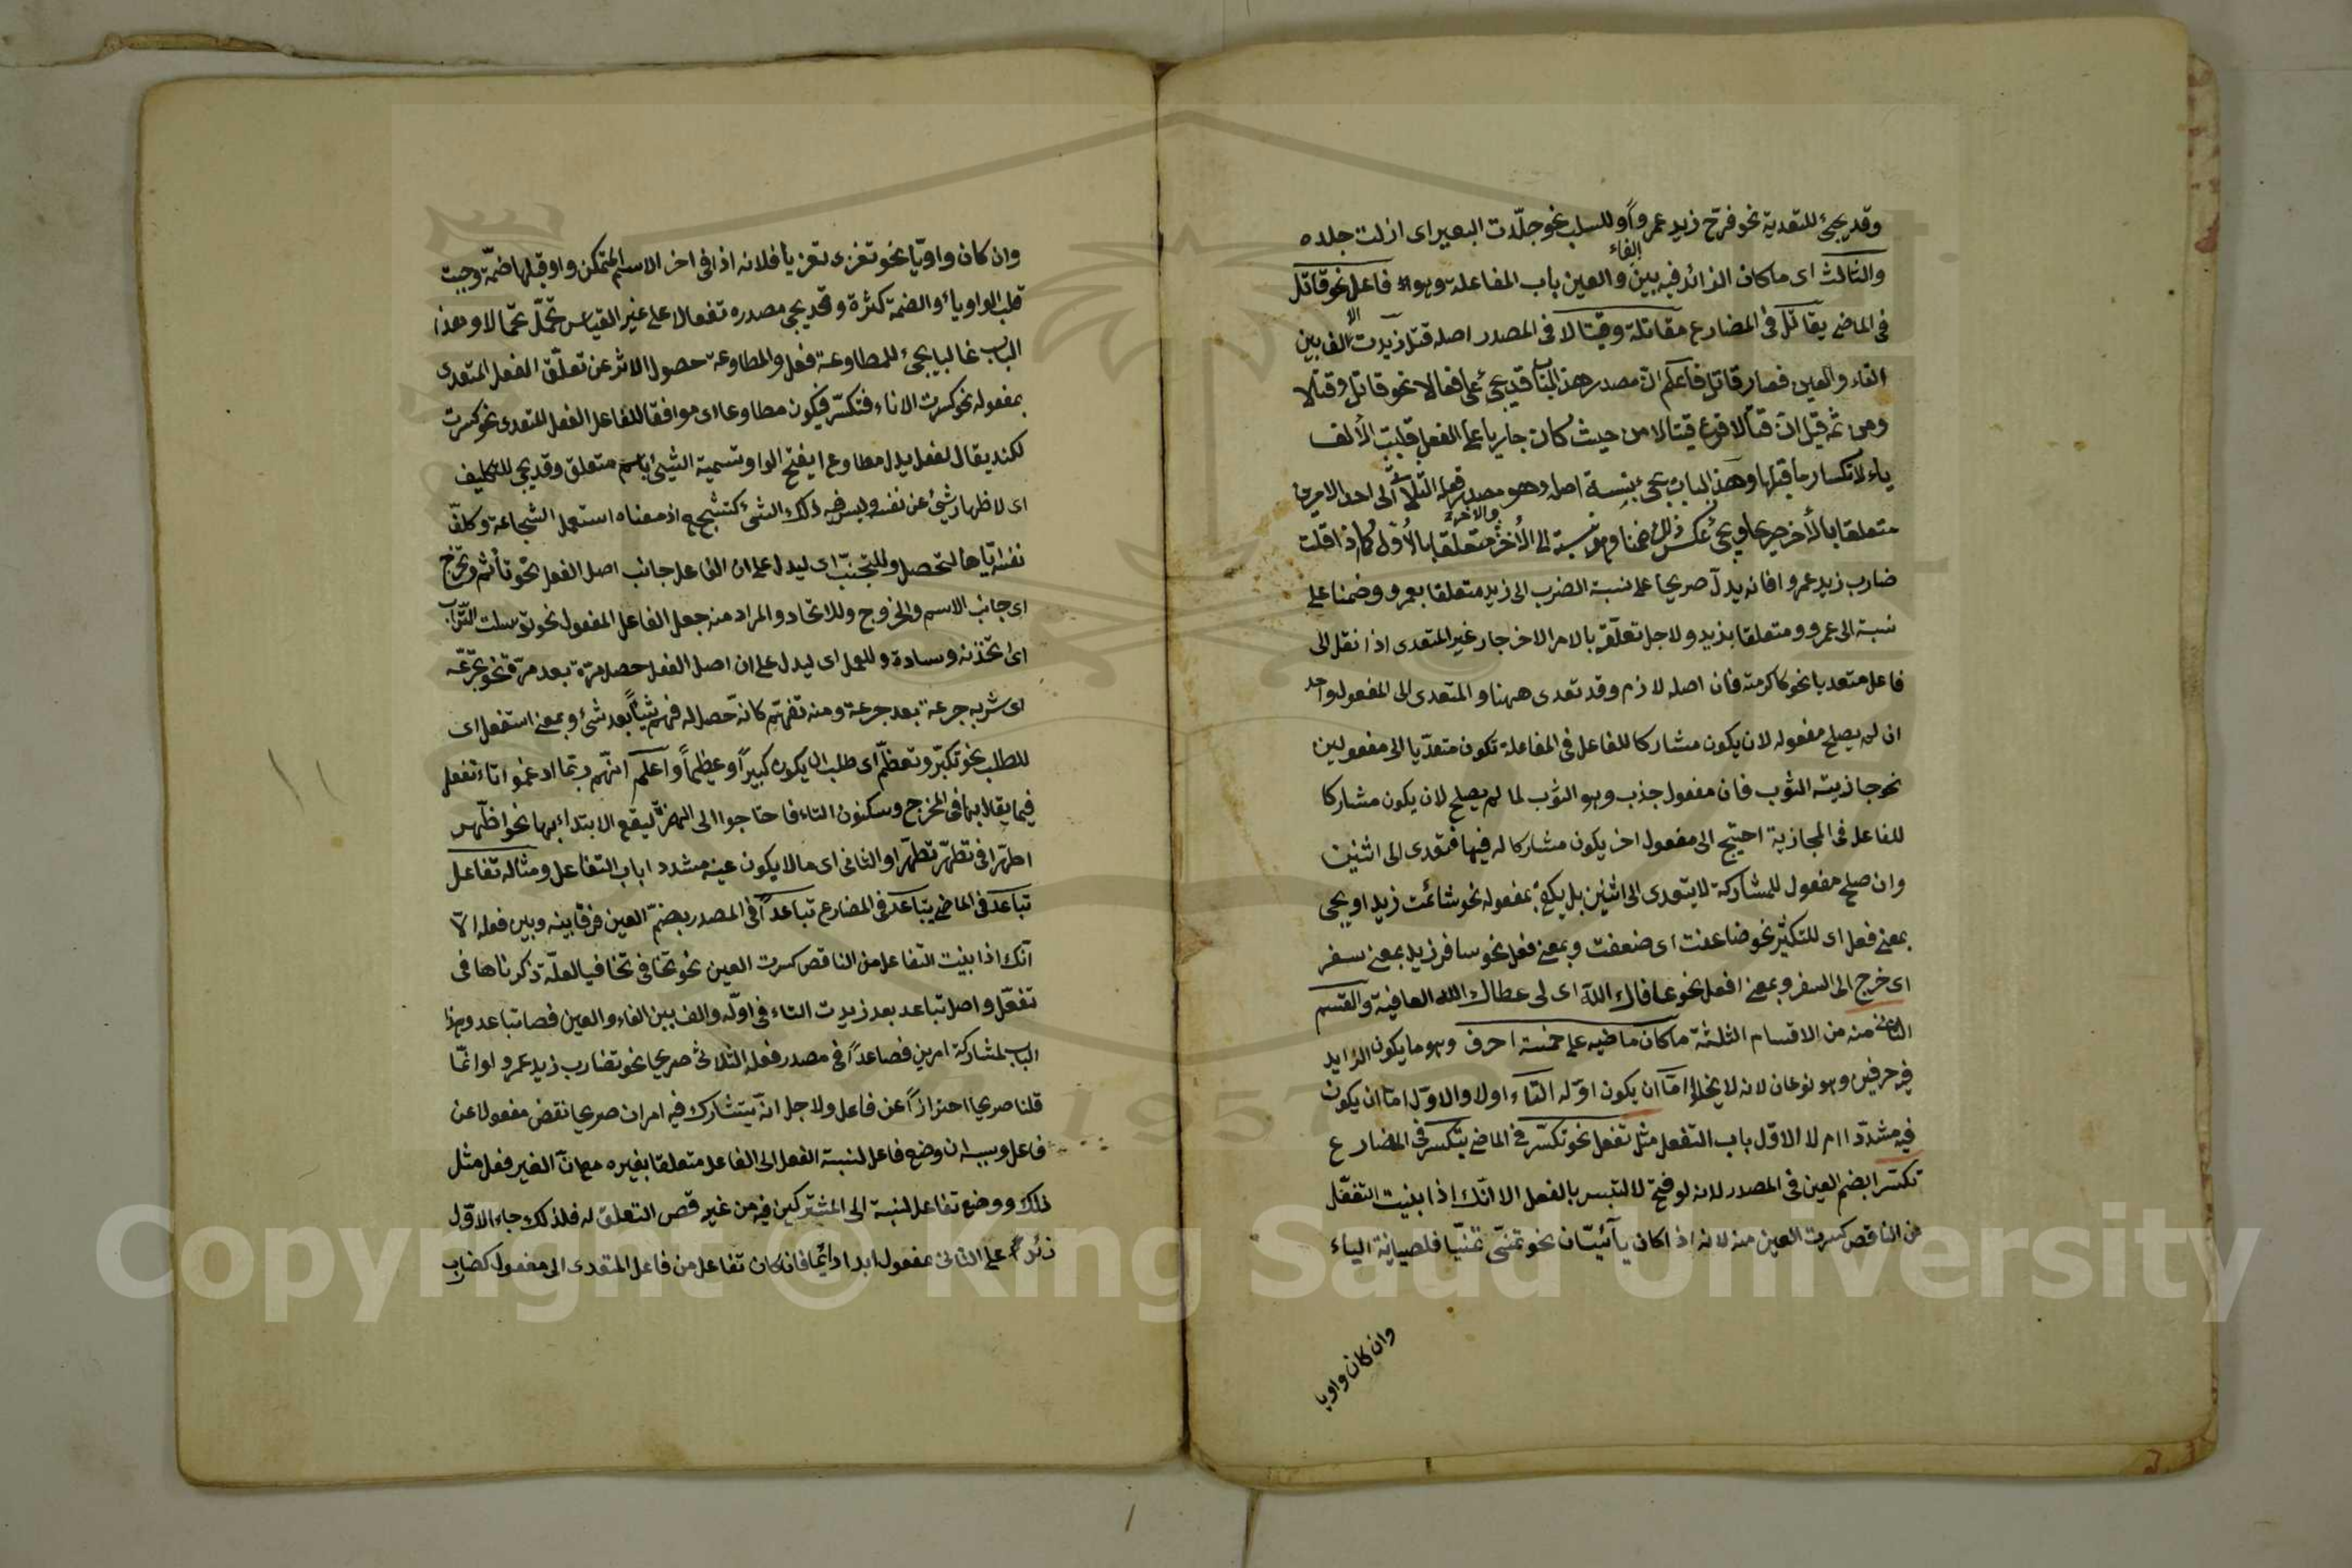 وقد يجئ للتعدية نحو فرّح زيد عمروا وللسلب نحو جلّدت البعير اى ازلت جلده
والثالث اى ما كان الزائد فيه بين الفاء والعين باب المفاعلة وهو فاعل نحو قاتل
فى الماضى يقاتل فى المضارع مقاتلة وقيتالا فى المصدر اصله قتل زيدت الالف بين
الفاء والعين فصار قاتل فاعلم انّ مصدر هذا الباب قد يجئ على فعالا نحو قاتل وقتالا
ومن ثمه قيل انّ قتالا فرع قيتالا من حيث كان جاريا على الفعل قلبت الألف
ياء لانكسار ما قبلها وهذا الباب يجئ بنسبة اصله وهو مصدر فعله الثلاثى الى احد الامرين
متعلقا بالأخر صريحا ويجئ عكس ذلك ضمنا وهو نسبته الى الأخر متعلقا بالأول كما اذا قلت
ضارب زيد عمروا فانه يدلّ صريحا على نسبة الضرب الى زيد متعلقا بعمرو وضمنا على
نسبته الى عمرو ومتعلقا بزيد ولاجل تعلّقه بالامر الاخر جار غير المتعدى اذا نقل الى
فاعل متعديا نحو كاكرمته فان اصله لازم وقد تعدى ههنا والمتعدى الى المفعول واحد
ان لم يصلح مفعوله لان يكون مشاركا للفاعل فى المفاعلة تكون متعدّيا الى مفعولين
نحو جاذبته الثوب فان مفعول جذب وهو الثوب لما لم يصلح لان يكون مشاركا
للفاعل فى المجاذبة احتيج الى مفعول اخر يكون مشاركا له فيها فتعدى الى اثنين
وان صلح مفعول للمشاركة لا يتعدى الى اثنين بل يكفى بمفعوله نحو شاتمت زيدا ويجئ
بمعنى فعل اى للتكثير نحو ضاعفت اى ضعفت وبمعنى فعل نحو سافر زيد بمعنى سفر
اى خرج الى السفر وبمعنى افعل نحو عافاك اللّه اى لى عطاك الله العافية والقسم
الثانى منه من الاقسام الثلثة ما كان ماضيه على خمسة احرف وهو ما يكون الزايد
فيه حرفين وهو نوعان لانه لا يخلو امّا ان يكون اوّله التاء اولا والاوّل امّا ان يكون
فيه مشدّدا ام لا الاوّل باب التفعل مثل تفعل نحو تكسّر فى الماضى يتكسر فى المضارع
تكسّرا بضم العين فى المصدر لانه لو فتح لالتبس بالفعل الا انّك اذا بنيت التفعّل
من الناقص كسرت العين منه لانه اذا كان يآئيّا نحو تمنّى تمنّيا فلصيانة الياء
وان كان واويا
وان كان واويّا نحو تغزى تغزيا فلانه اذا فى اخر الاسم المتمكن واو قبلها ضمّة وجبت
قلب الواو ياء والضمة كثرة وقد يجى مصدره تفعالا على غير القياس تحمّل تحمّالا وهذا
الباب غالبا يجئ للمطاوعة فعل والمطاوعة حصول الاثر عن تعلّق الفعل المتعدى
بمفعوله نحو كسرت الاناء فتكسّر فيكون مطاوعا اى موافقا للفاعل الفعل المتعدى نحو كسرت
لكنه يقال لفعل يدل مطاوع ايفتح الواو تسمية الشئ باسم متعلق وقد يجى للتكليف
اى لاظهار شئ عن نفسه وليس فيه ذلك الشئ كتشجع اذ معناه استعمل الشجاعة وكلّف
نفسه اياها لتحصل وللتجنّب اى ليدل على ان الفاعل جانب اصل الفعل نحو تأثم وتحرّج
اى جانب الاسم والخروج وللاتحاد والمراد منه جعل الفاعل المفعول نحو توسلت التّراب
اى اتخذته وسادة وللعمل اى ليدل على ان اصل الفعل حصل مرّة بعد مرّة نحو تجرّعه
اى شربه جرعة بعد جرعة ومنه تفهّم كانّه حصل له فهم شيئاً بعد شئ وبمعنى استفعل اى
للطلب نحو تكبّر وتعظّم اى طلب ان يكون كبيراً وعظيماً واعلم انهم ربّما ادغموا تاء تفعل
فيما يقاربها فى المخرج وسكنون التاء فاحتاجوا الى الهمزة ليقع الابتداء بها نحو اظّهر
اطهّرا فى تطهّر تطهّرا والثانى اى مالا يكون عينه مشددا باب التفاعل ومثاله تفاعل
تباعد فى الماضى يتباعد فى المضارع تباعداً فى المصدر بضمّ العين فرقا بينه وبين فعله الّا
انّك اذا بنيت التفاعل من الناقص كسرت العين نحو تجافى تجافيا لعلّة ذكرناها فى
تفعّل واصل تباعد بعد زيدت التاء فى اوّله والف بين الفاء والعين فصا تباعد وهذا
الباب لمشاركة امرين فصاعداً فى مصدر فعله الثلاثى صريحا نحو تضارب زيد عمرو وانّما
قلنا صريحا احترازاً عن فاعل ولاجل انّه يتشارك فيه امران صريحا نقض مفعولا عن
فاعل وسببه ان وضع فاعل لنسبة الفعل الى الفاعل متعلقا بغيره مع انّ الغير فعل مثل
ذلك ووضع تفاعل لنسبة الى المشتركين فيه من غير قص التعلق له فلذلك جاء الاوّل
زئداً على الثانى بمفعول ابدا دائما فان كان تفاعل من فاعل المتعدى الى مفعول كضارب